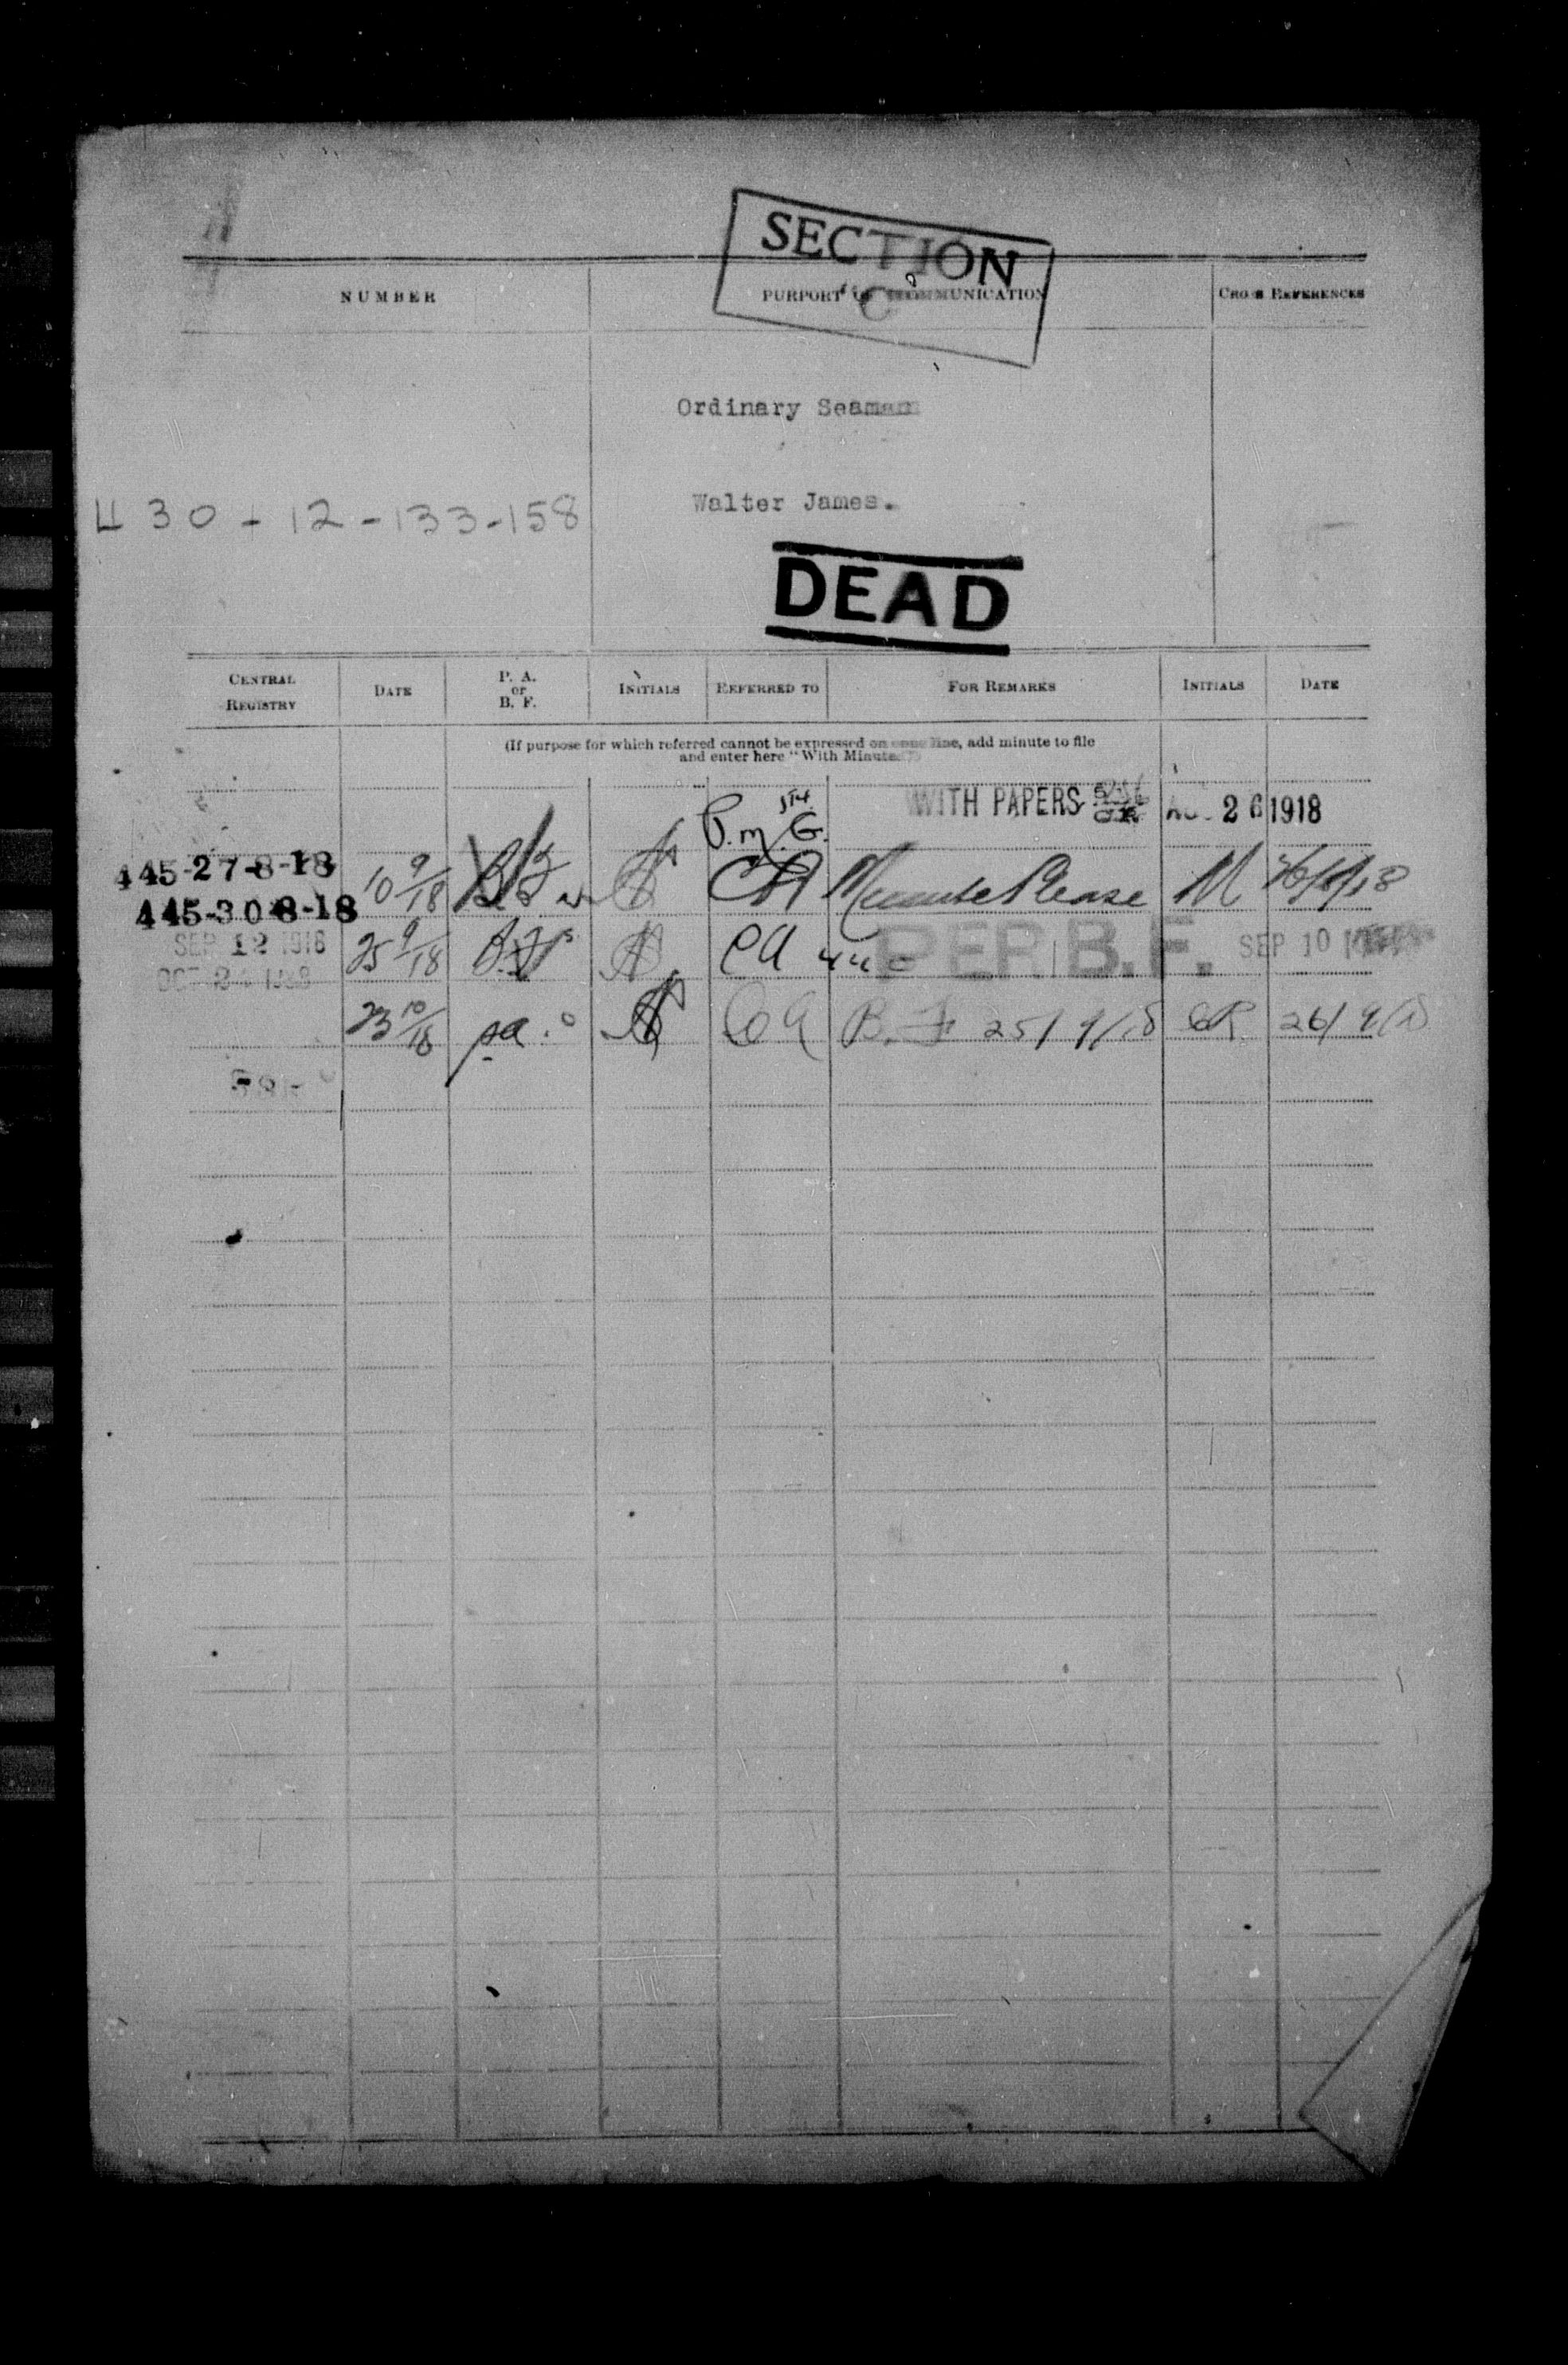 SECTION
"C"
NUMBER PURPORT OF COMMUNICATION CROSS REFERENCES
Ordinary Seaman
430-12-133-158 Walter James.
DEAD
CENTRAL REGISTRY DATE P. A. or B. F. INITIALS REFERRED TO FOR REMARKS INITIALS DATE
(If purpose for which referred cannot be expressed on one line, add minute to file
and enter here "With Minute.")
WITH PAPERS AUG 26 1918
P.M.G.
445-27-8-18 10 9/18 B.F. Minute Please M 26/8/18
445-30-8-18
SEP 12 1918 25 9/18 B.F. CA PER B.F. SEP 10
OCT 24 1918
23 10/18 pa. CA B.F. 25/9/18 CR. 26/9/18